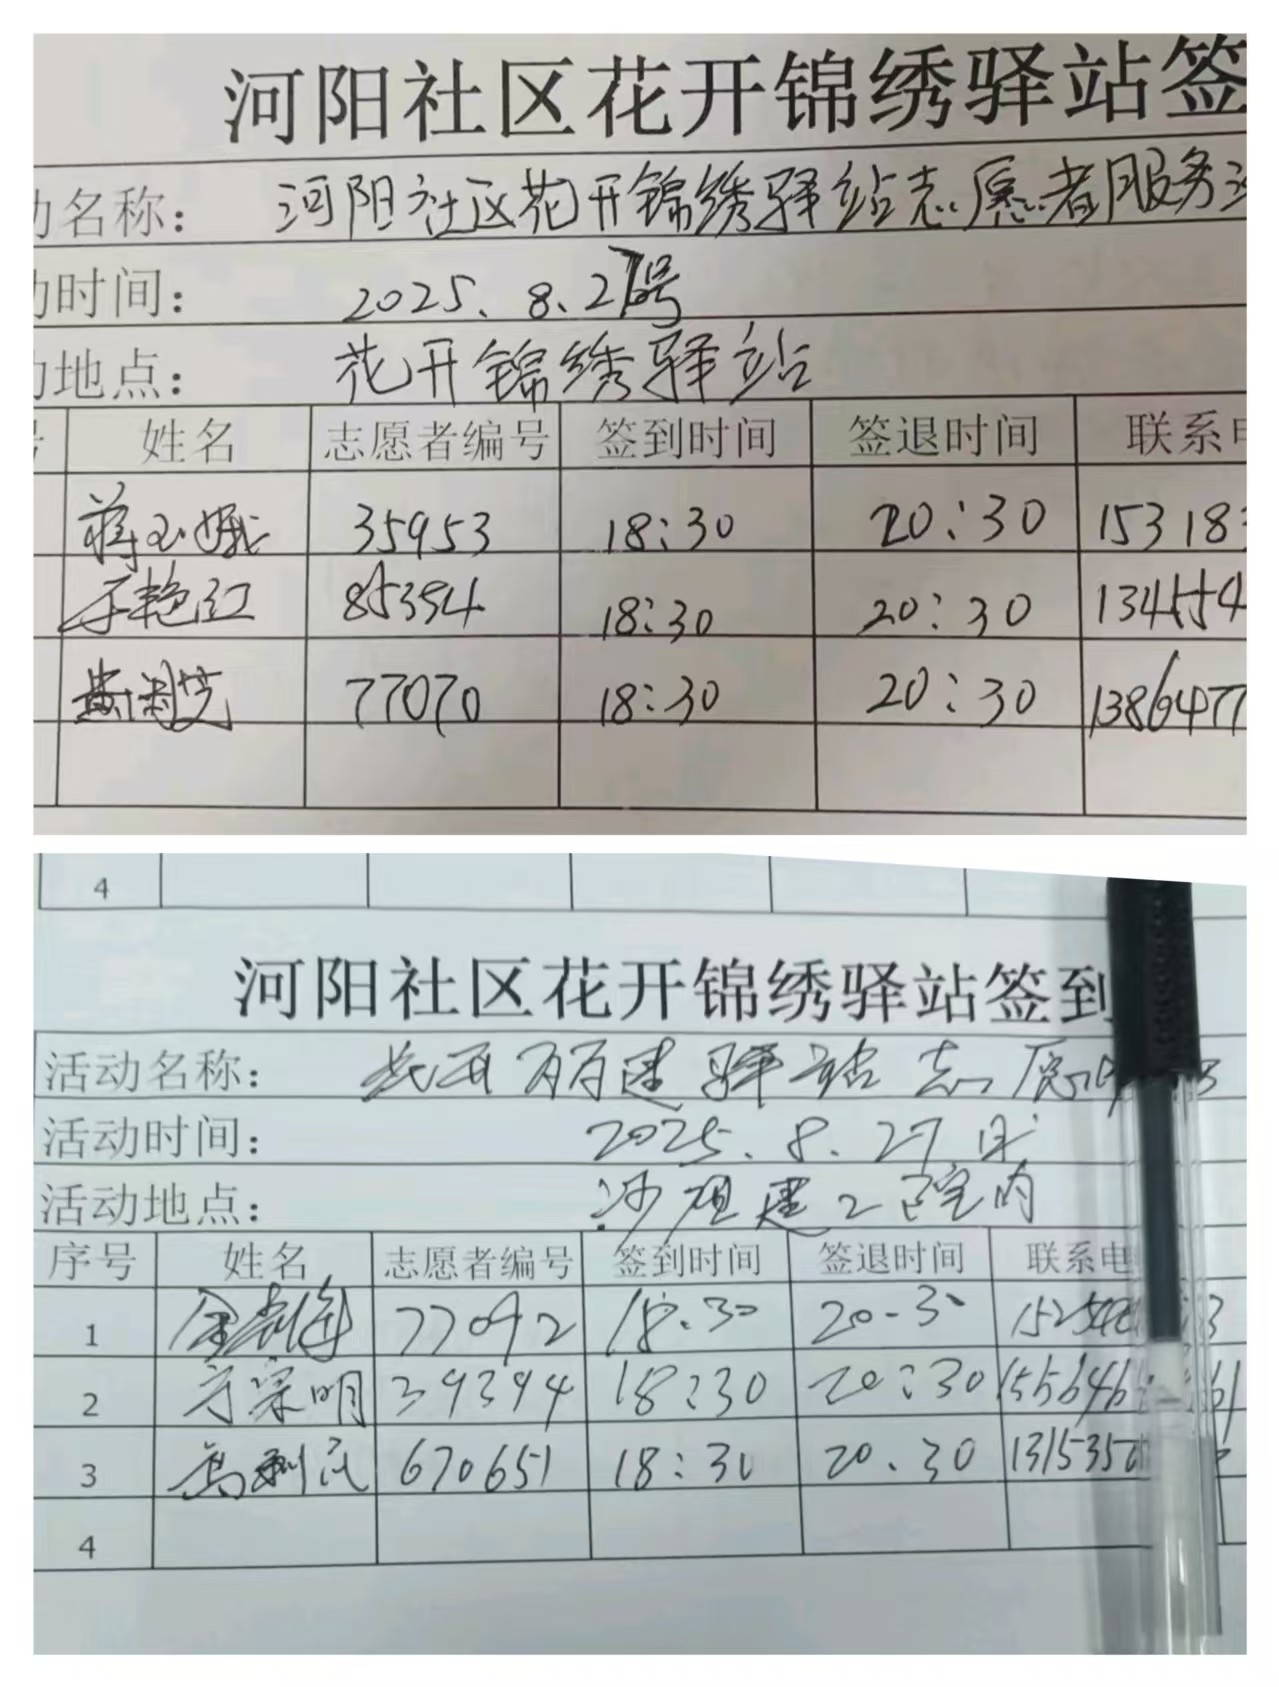 河阳社区花开锦绣驿站签
动名称： 河阳社区花开锦绣驿站志愿者服务活
动时间： 2025.8.27号
动地点： 花开锦绣驿站
号 姓名 志愿者编号 签到时间 签退时间 联系电
蒋玉娥 35953 18:30 20:30 153183
于艳红 85394 18:30 20:30 134554
77070 18:30 20:30 1386477
4
河阳社区花开锦绣驿站签到
活动名称： 驿站志愿
活动时间： 2025.8.27日
活动地点： 院内
序号 姓名 志愿者编号 签到时间 签退时间 联系电
1 77092 18:30 20:30
2 宗明 39394 18:30 20:30 1556461
3 高利民 670651 18:30 20.30 1315350
4